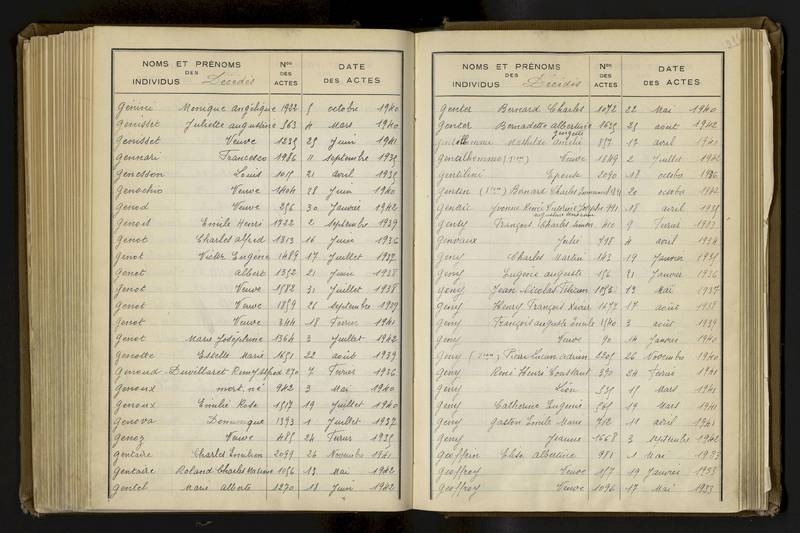 NOMS ET PRÉNOMS
DES
INDIVIDUS Décédés
Nos
DES
ACTES
DATE
DES ACTES
Génin Monique Angélique 1922 5 octobre 1940
Genisset Juliette Augustine 563 4 Mars 1940
Genisset Veuve 1235 25 Juin 1941
Gennari Francesco 1986 11 septembre 1935
Genesson Louis 1015 21 avril 1935
Genochio Veuve 1404 28 Juin 1940
Genod Veuve 256 30 Janvier 1942
Genoit Emile Henri 1722 2 septembre 1939
Genot Charles alfred 1813 16 Juin 1936
Genot Victor Eugène 1489 17 Juillet 1932
Genot Albert 1352 21 Juin 1938
Genot Veuve 1582 31 Juillet 1938
Genot Veuve 1859 26 septembre 1939
Genot Veuve 344 18 Fevrier 1941
Genot Marie Joséphine 1364 3 Juillet 1942
Genotte Estelle Marie 1651 22 août 1939
Genoud Duvillaret Remy Alfred 270 7 Fevrier 1936
Genoux mort né 942 3 Mai 1940
Genoux Emilie Rose 1517 19 Juillet 1940
Genova Dominique 1393 1 Juillet 1937
Genoz Veuve 485 24 Fevrier 1935
Gentaire Charles Emilien 2099 26 Novembre 1941
Gentaire Roland Charles 1056 13 Mai 1942
Gentel Marie Alberte 1270 18 Juin 1942
NOMS ET PRÉNOMS
DES
INDIVIDUS Décédés
Nos
DES
ACTES
DATE
DES ACTES
Genter Bernard Charles 1072 22 Mai 1940
Genter Bernadette Albertine 1635 25 aout 1942
Mathilde Amélie 857 17 avril 1940
Gentilhomme Veuve 1849 2 Juillet 1942
Gentilini Epouse 2090 18 octobre 1936
Gentin Bernard Charles 20 octobre 1942
Yvonne Renée Joseph 991 18 avril 1935
Genty François Charles 410 9 Fevrier 1933
Genvaux Julie 798 4 avril 1934
Geny Charles Martin 143 19 Janvier 1935
Geny Eugénie Auguste 156 21 Janvier 1936
Geny Jean Nicolas 1056 12 Mai 1937
Geny Henry François Xavier 1677 17 août 1938
Geny François Auguste Emile 1540 3 août 1939
Geny Veuve 90 14 Janvier 1940
Geny Pierre Lucien Adrien 2205 26 Novembre 1940
Geny René Henri Constant 390 24 Fevrier 1941
Geny Léon 535 15 Mars 1941
Geny Catherine Eugenie 565 19 Mars 1941
Geny Gaston Emile Marie 712 11 avril 1941
Geny Jeanne 1668 3 septembre 1942
Geoffrin Elise Albertine 981 1 Mai 1933
Geoffroy Veuve 157 19 Janvier 1933
Geoffroy Veuve 1096 17 Mai 1933